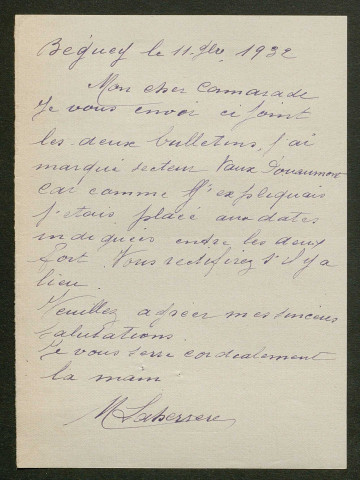 Béguey le 11 1932
Mon cher Camarade
Je vous envoi ci joint
les deux bulletins, j'ai
marqué secteur Vaux Douaumont
car comme expliquais
j'etais placé aux dates
indiquées entre les deux
fort. Vous rectifirez s'il y a
lieu.
Veuillez agréer mes sincères
salutations.
Je vous serre cordialement
la main